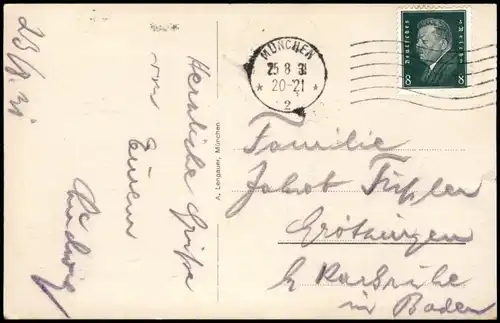 23/8. 31
Herzliche Grüße
von
Eurem
Ludwig
A. Lengauer, München
MÜNCHEN
25 8 31
20-21
2
Deutsches Reich
8 8
Familie
Jakob
Grötzingen
b/ Karlsruhe
in Baden